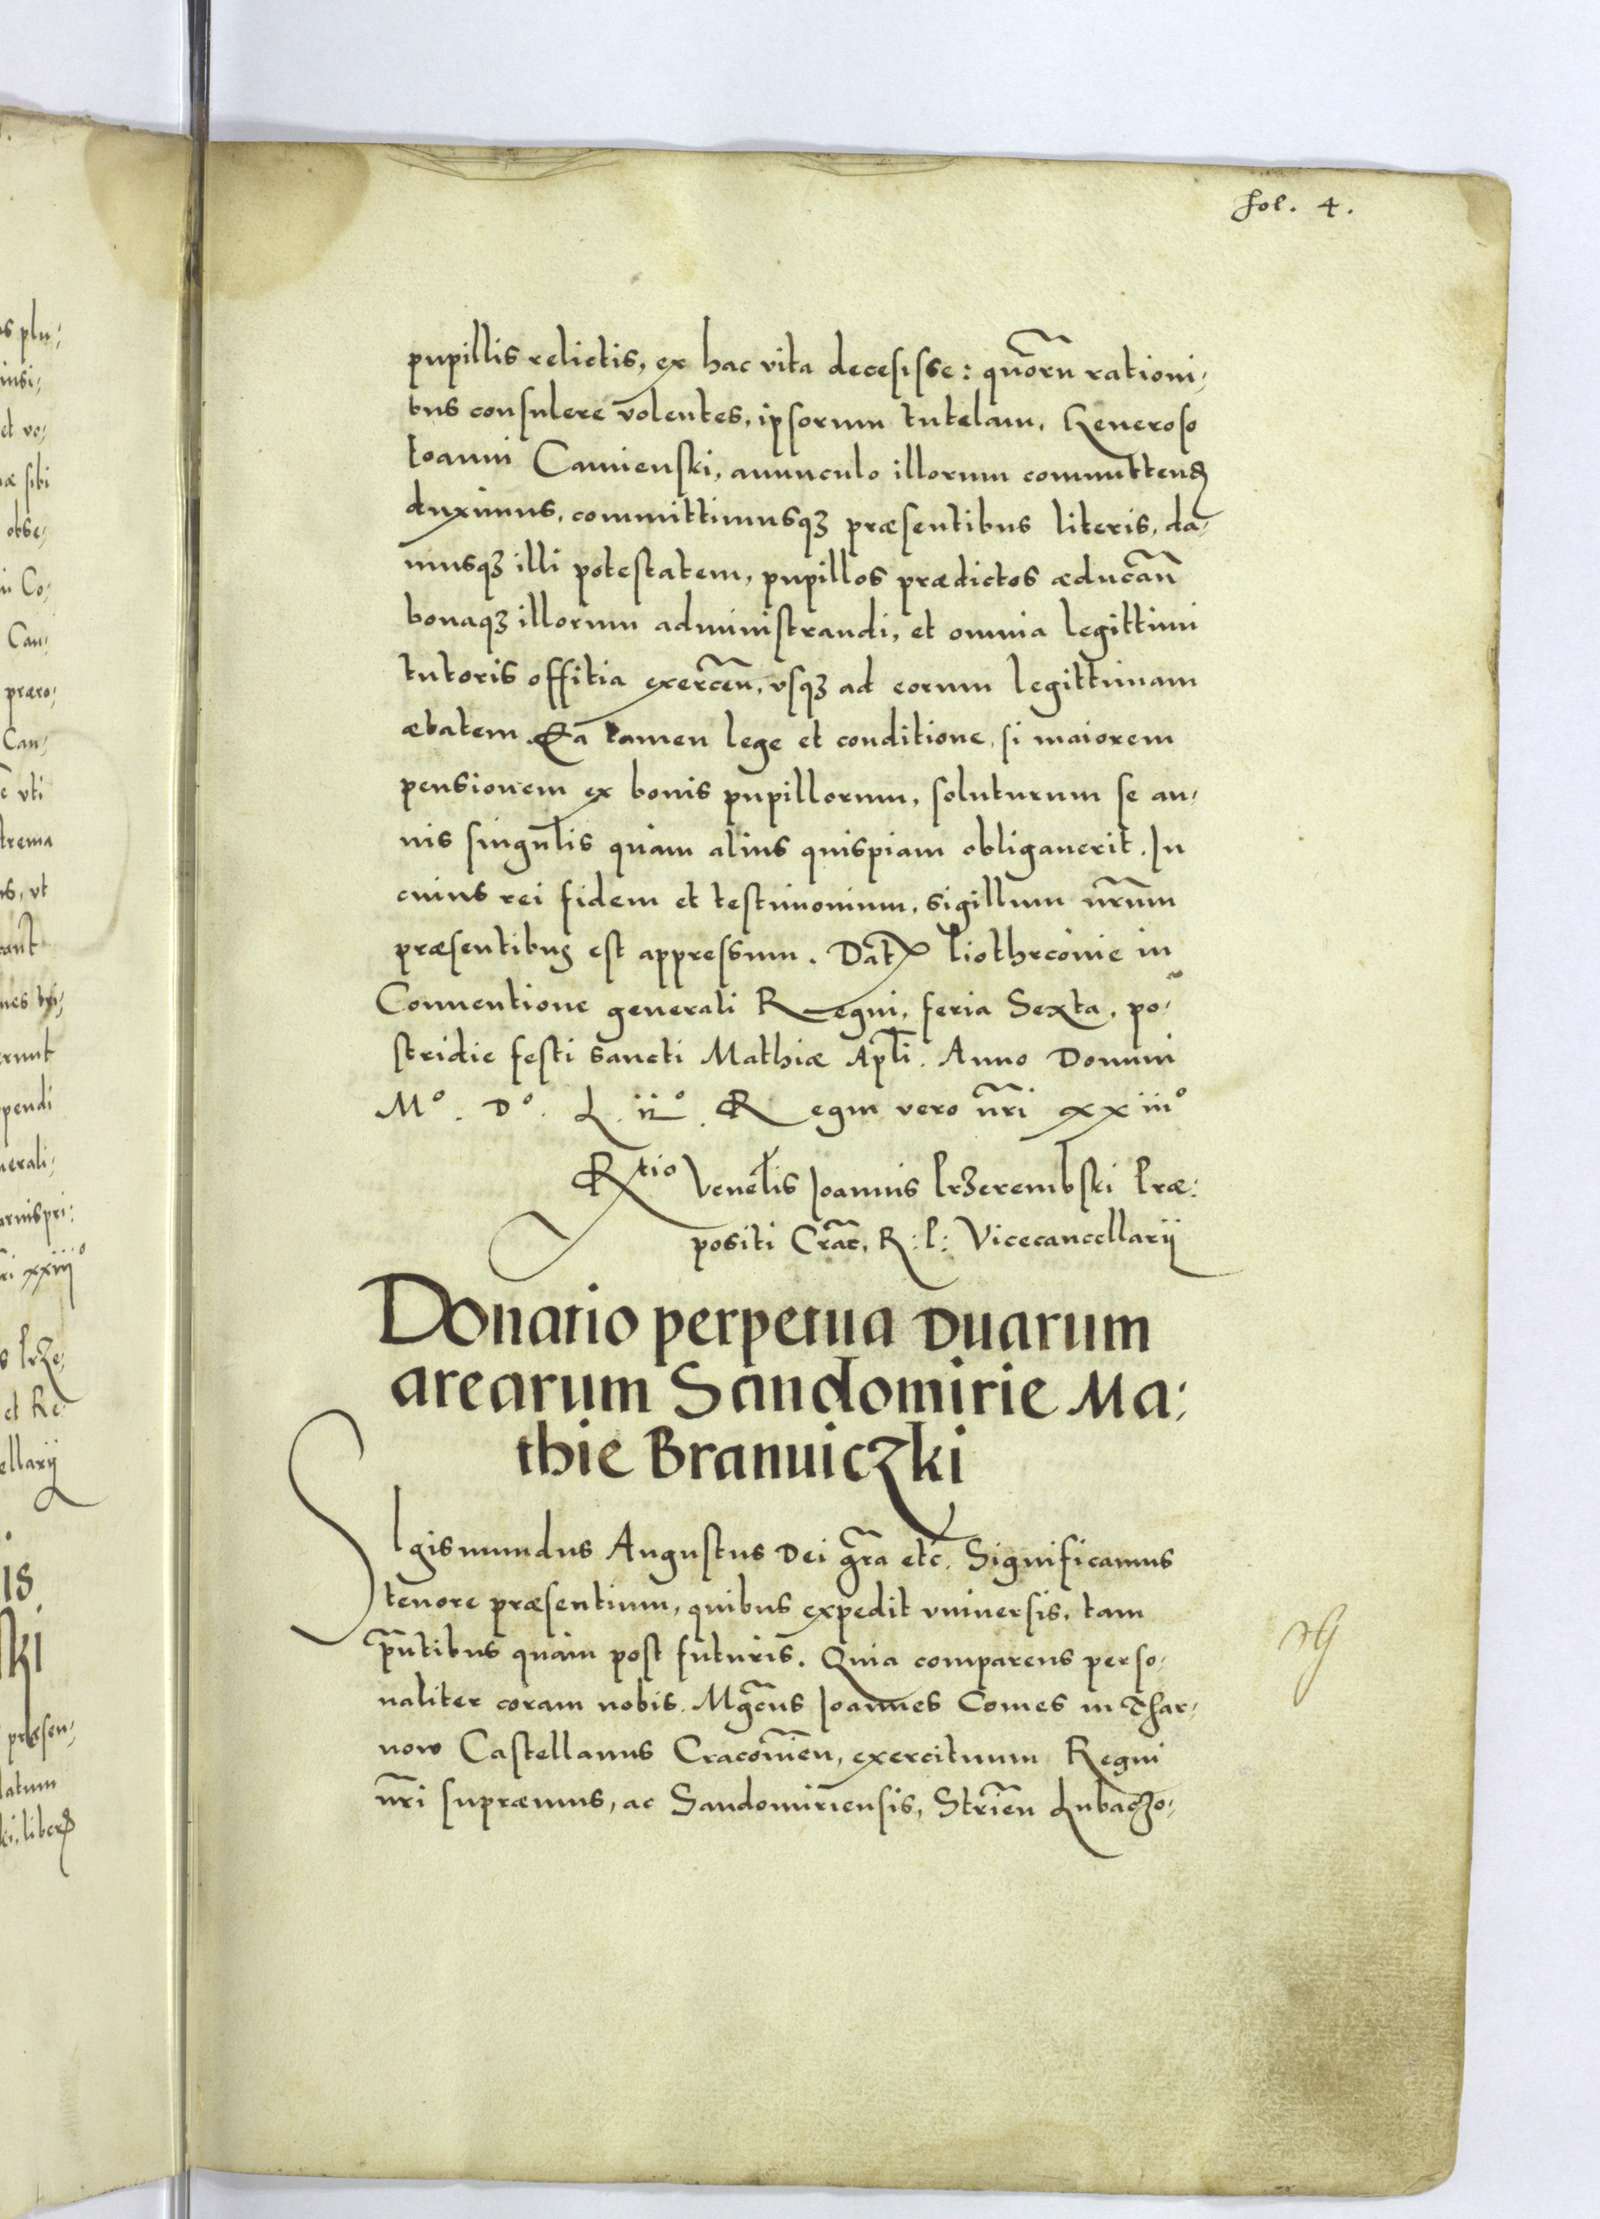 fol. 4.
pupillis relictis, ex hac vita decesisse: quorū rationi-
bus consulere volentes, ipsorum tutelam, Generoso
Ioanni Camienski, auunculo illorum committenđ
duximus, committimusqꝫ præsentibus literis, da-
musqꝫ illi potestatem, pupillos prædictos æducan̄
bonaqꝫ illorum administrandi, et omnia legittimi
tutoris offitia exercen̄, vsqꝫ ad eorum legittimam
ætatem. Ea tamen lege et conditione, si maiorem
pensionem ex bonis pupillorum, soluturum se an-
nis singul̄is quam alius quispiam obligauerit. In
cuius rei fidem et testimonium, sigillum nr̄um
præsentibus est appressum. Dat̄ Piothrcouie in
Conuentione generali Regni, feria Sexta, po-
stridie festi sancti Mathiæ Apl̄i. Anno Domini
Mº. Dº. L. iiº. Regni vero nr̄i xxiiiº
Rtio Venel̄is Ioannis Przerembski Præ:
positi Crac̄, R: P: Vicecancellarij
Donatio perpetua duarum
arearum Sandomirie Ma:
thie Branuiczki
SIgismundus Augustus Dei gr̄a etc̄. Significamus
tenore præsentium, quibus expedit vniuersis, tam
pn̄tibus quam post futuris. Quia comparens perso-
naliter coram nobis. Mgc̄us Ioannes Comes in Thar-
now Castellanus Cracouien̄, exercituum Regni
nr̄i supræmus, ac Sandomiriensis, Strien̄ Lubaczo-